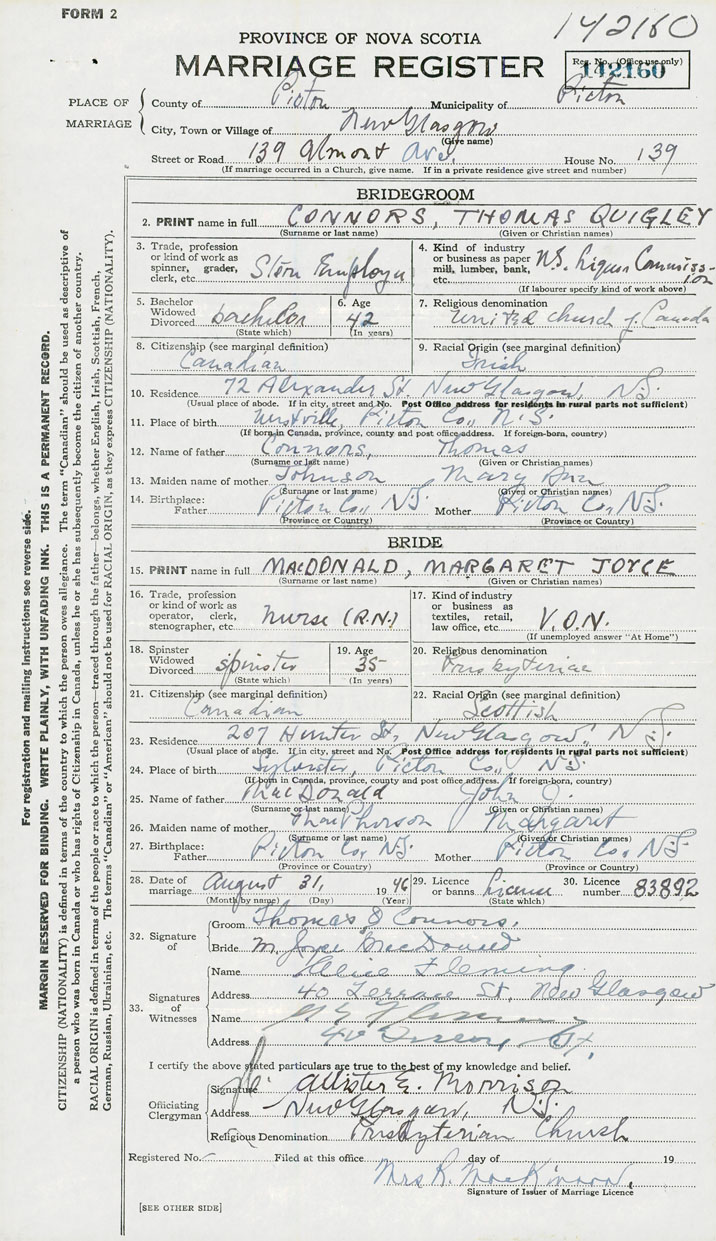 FORM 2
142160
PROVINCE OF NOVA SCOTIA
MARRIAGE REGISTER
Reg. No. (Office use only)
142160
PLACE OF MARRIAGE
County of Pictou Municipality of Pictou
City, Town or Village of New Glasgow
(Give name)
Street or Road 139 Almont Ave. House No. 139
(If marriage occurred in a Church, give name. If in a private residence give street and number)
BRIDEGROOM
2. PRINT name in full CONNORS, THOMAS QUIGLEY
(Surname or last name) (Given or Christian names)
3. Trade, profession or kind of work as spinner, grader, clerk, etc. Store Employee
4. Kind of industry or business as paper mill, lumber, bank, etc. N.S. Liquor Commission
(If labourer specify kind of work above)
5. Bachelor Widowed Divorced bachelor
(State which)
6. Age 42
(In years)
7. Religious denomination United Church of Canada
8. Citizenship (see marginal definition) Canadian
9. Racial Origin (see marginal definition) Irish
10. Residence 72 Alexander St. New Glasgow, N.S.
(Usual place of abode. If in city, street and No. Post Office address for residents in rural parts not sufficient)
11. Place of birth Westville, Pictou Co., N.S.
(If born in Canada, province, county and post office address. If foreign-born, country)
12. Name of father Connors, Thomas
(Surname or last name) (Given or Christian names)
13. Maiden name of mother Johnson Mary Ann
(Surname or last name) (Given or Christian names)
14. Birthplace: Father Pictou Co., N.S. Mother Pictou Co., N.S.
(Province or Country) (Province or Country)
BRIDE
15. PRINT name in full MACDONALD, MARGARET JOYCE
(Surname or last name) (Given or Christian names)
16. Trade, profession or kind of work as operator, clerk, stenographer, etc. Nurse (R.N.)
17. Kind of industry or business as textiles, retail, law office, etc. V.O.N.
(If unemployed answer "At Home")
18. Spinster Widowed Divorced spinster
(State which)
19. Age 35
(In years)
20. Religious denomination Presbyterian
21. Citizenship (see marginal definition) Canadian
22. Racial Origin (see marginal definition) Scottish
23. Residence 207 Hunter St., New Glasgow, N.S.
(Usual place of abode. If in city, street and No. Post Office address for residents in rural parts not sufficient)
24. Place of birth Sylvester, Pictou Co., N.S.
(If born in Canada, province, county and post office address. If foreign-born, country)
25. Name of father MacDonald John
(Surname or last name) (Given or Christian names)
26. Maiden name of mother MacPherson Margaret
(Surname or last name) (Given or Christian names)
27. Birthplace: Father Pictou Co., N.S. Mother Pictou Co., N.S.
(Province or Country) (Province or Country)
28. Date of marriage August 31, 1946
(Month by name) (Day) (Year)
29. Licence or banns License
(State which)
30. Licence number 83892
32. Signature of
Groom Thomas Q Connors.
Bride M. Joyce MacDonald
33. Signatures of Witnesses
Name Fleming
Address 40 Terrace St, New Glasgow
Name
Address 40 St,
I certify the above stated particulars are true to the best of my knowledge and belief.
Officiating Clergyman
Signature Allister E. Morrison
Address New Glasgow, N.S.
Religious Denomination Presbyterian Church
Registered No. Filed at this office day of 19
Mrs R. MacKinnon,
Signature of Issuer of Marriage Licence
[SEE OTHER SIDE]
For registration and mailing instructions see reverse side.
MARGIN RESERVED FOR BINDING. WRITE PLAINLY, WITH UNFADING INK. THIS IS A PERMANENT RECORD.
CITIZENSHIP (NATIONALITY) is defined in terms of the country to which the person owes allegiance. The term "Canadian" should be used as descriptive of
a person who was born in Canada or who has rights of Citizenship in Canada, unless he or she has subsequently become the citizen of another country.
RACIAL ORIGIN is defined in terms of the people or race to which the person—traced through the father—belongs, whether English, Irish, Scottish, French,
German, Russian, Ukrainian, etc. The terms "Canadian" or "American" should not be used for RACIAL ORIGIN, as they express CITIZENSHIP (NATIONALITY).